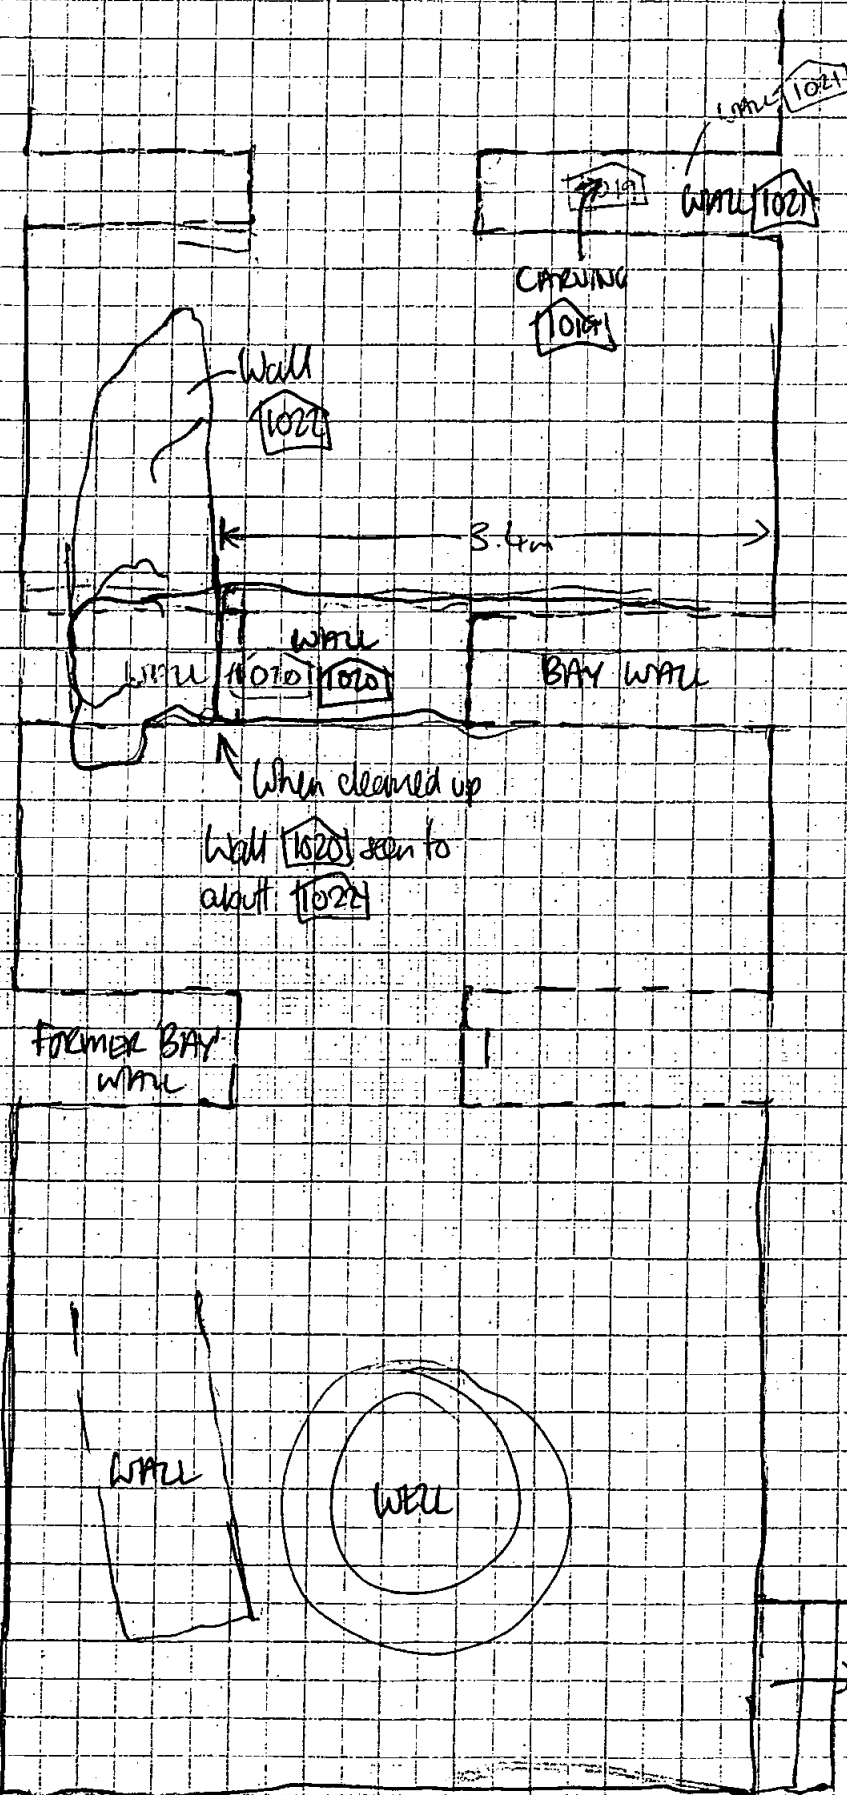 WALL 1021
1019
WALL 1021
CARVING
1019
Wall
1022
3.4m
WALL
WALL 1020 1020
BAY WALL
When cleaned up
Wall 1020 seen to
abutt 1022
FORMER 'BAY'
WALL
WALL
WELL